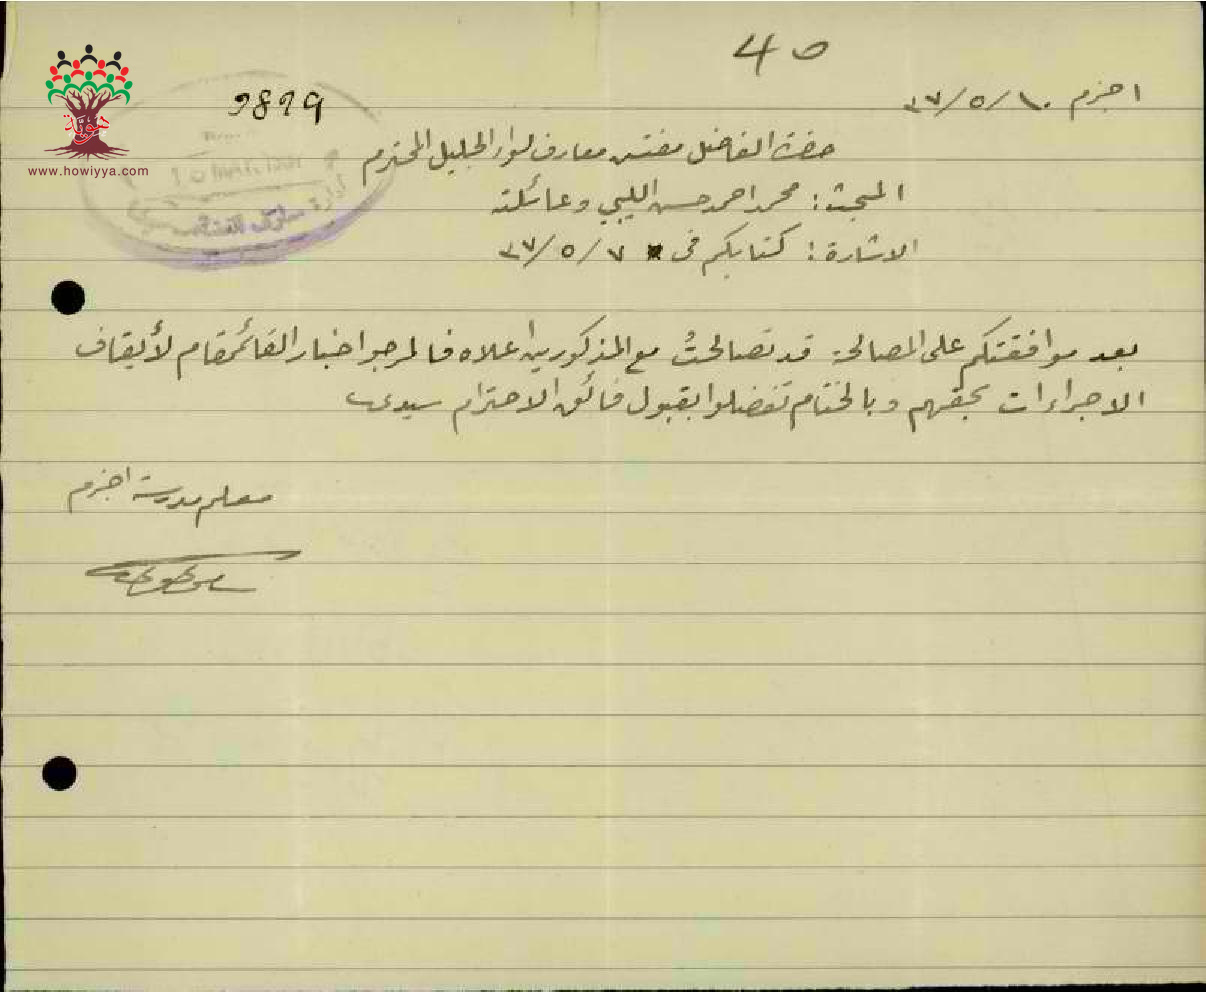 40
اجزم ١٠/٥/٣٧
حضرة الفاضل مفتش معارف لواء الجليل المحترم
المبحث: محمد احمد حسن الليبي وعائلته
الاشارة: كتابكم في ٧/٥/٣٧
بعد موافقتكم على المصالحة قد تصالحتُ مع المذكورين اعلاه فالمرجو اخبار القائمقام لأيقاف
الاجراءات بحقهم وبالختام تفضلوا بقبول فائق الاحترام سيدي
معلم مدرسة اجزم
هوية
www.howiyya.com